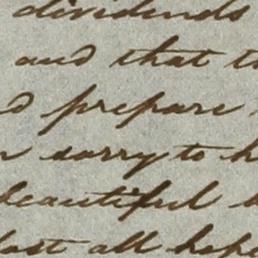 dividends
and that
prepare
sorry to
beautiful
last all hope